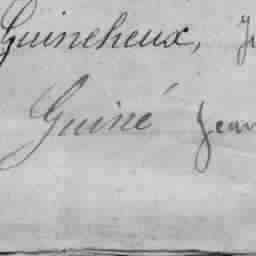 Guineheux,
Guiné Jean